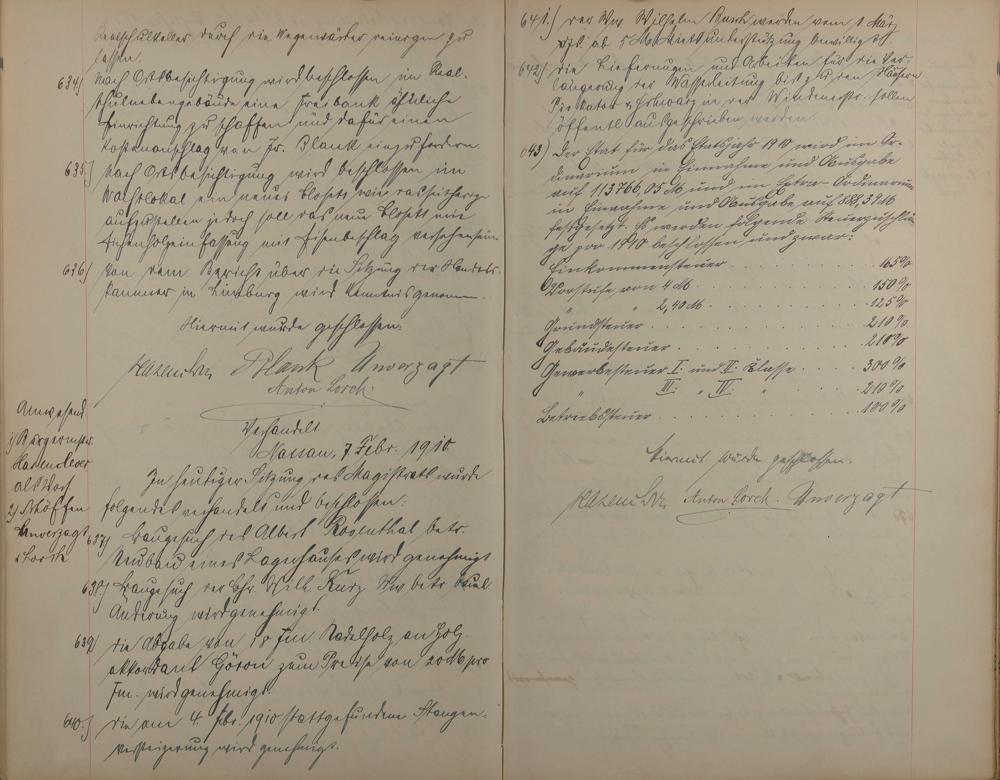 Realschulkeller durch die Wegewärter reinigen zu
lassen.
634.) Nach Ortsbesichtigung wird beschlossen im Real-
schulnebengebäude eine Freibank ähnliche
Einrichtung zu schaffen und dafür einen
Kostenanschlag von Fr. Blank einzufordern.
635.) Nach Ortsbesichtigung wird beschlossen im
Wahllokal ein neues Closett wie das seitherige
aufzustellen jedoch soll das neue Closett mit
Eichenholzeinfassung mit Eisenbeschlag versehen sein
636.) Von dem Bericht über die Sitzung der Handels-
kammer in Limburg wird Kenntnis genommen.
Hiermit wurde geschlossen.
Hasenclever Blank Unverzagt
Anton Lorch.
Anwesend
1) Bürgermstr.
Hasenclever
als Vors.
2) Schöffen
Unverzagt
u Lorch
Verhandelt
Nassau, 7 Febr. 1910
In heutiger Sitzung des Magistrats wurde
folgendes verhandelt und beschlossen:
637.) Baugesuch des Albert Rosenthal betr.
Neubau eines Lagerhauses wird genehmigt
638.) Baugesuch der Chr. Wilh. Kurz Ww betr.
Änderung wird genehmigt.
639) die Abgabe von 18 Fm. Nadelholz an Holz-
akkordant Göron zum Preise von 20 M pro
Fm. wird genehmigt.
640.) die am 4. Febr. 1910 stattgefundene Stangen-
versteigerung wird genehmigt.
641.) der Ww Wilhelm Busch werden vom 1. März
d. J. ab 5 M Mietsunterstützung bewilligt
642) die Lieferungen und Arbeiten für die Ver-
längerung der Wasserleitung bis zu den Häusern
Piskator & Schwarz in der Windenerstr. sollen
öffentl. ausgeschrieben werden
643) Der Etat für das Etatsjahr 1910 wird im Or-
dinarium in Einnahme und Ausgabe
auf 113766,05 M und im Extra-Ordinarium
in Einnahme und Ausgabe auf
festgesetzt. Es werden folgende Steuerzuschlä-
ge pro 1910 beschlossen und zwar:
Einkommensteuer 165%
Vorstufe von 4 M 150%
" " 2,40 M 125%
Grundsteuer 210%
Gebäudesteuer 210%
Gewerbesteuer I. und II. Classe 300%
" III. " IV. " 210%
Betriebssteuer 100%
Hiermit wurde geschlossen.
Hasenclever Anton Lorch Unverzagt